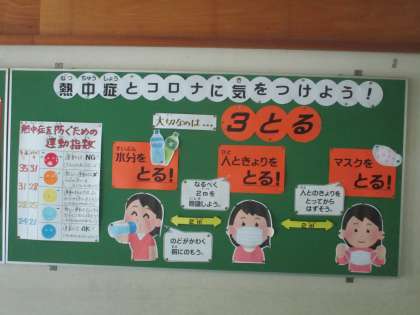 熱中症とコロナに気をつけよう!
ねっ ちゅう しょう
き
大切なのは…
3とる
熱中症を防ぐための
運動指数
35 31
31 28
28 25
24 21
運動は NG
運動は OK
すいぶん
水分を
とる!
ひと
人ときょりを
とる!
マスクを
とる!
なるべく
2mを
意識しよう。
人とのきょりを
とってから
はずそう。
のどがかわく
前にのもう。
2m
2m